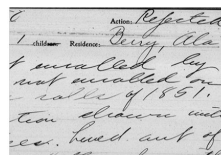 Action: Rejected
1 child Residence: Berry, Ala
t enrolled by
not enrolled on
rolls of 1851.
tion shown
es. lived out of